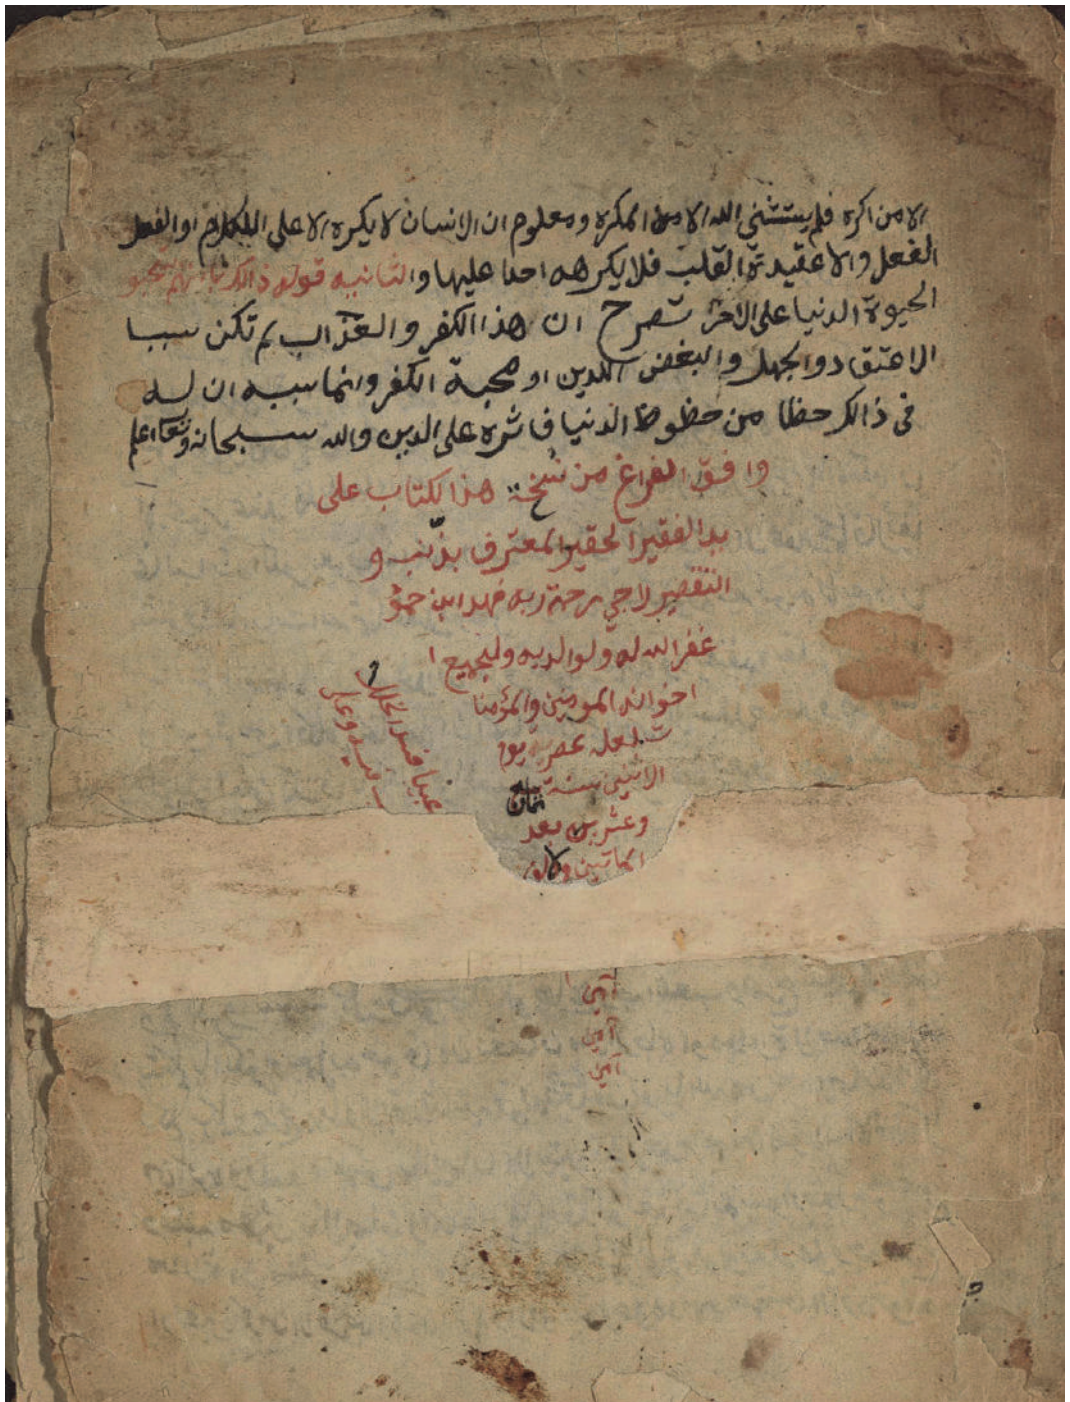 الا من اكره فلم يستثنى الله الا من المكره ومعلوم ان الانسان لا يكره الا على الكلام او الفعل
الفعل والا عقيدة القلب فلا يكرهه احدا عليها والثانيه قوله ذالك بانهم استحبو
الحيوة الدنيا على الاخرة تصرح ان هذا الكفر والعذاب لم تكن سببا
الاعتقاد والجهل والبغض للدين او محبة الكفر وانما سببه ان له
في ذالك حظا من حظوظ الدنيا فاثره على الدين والله سبحانه وتعا اعلم
وافق الفراغ من نسخة هذا لكتاب على
يد الفقير الحقير المعترف بذنب و
التقصير لاجي رحمة ربه فهد ابن
غفر الله له ولوالديه ولجميع ا
اخوانه المومنين والمؤمنا
ت عصر يوم
الاثنين سنة ثمان
وعشرين بعد
الماتين والالف
آمين
آمين
آمين
فيه وعلا